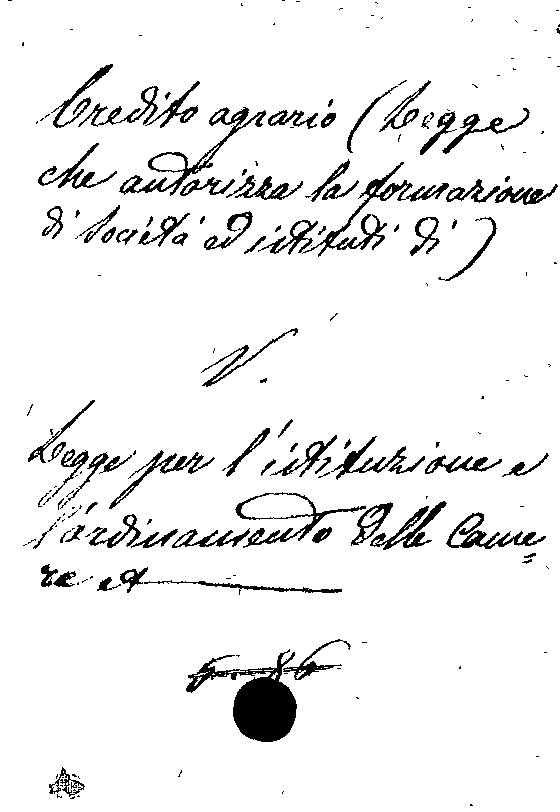 Credito agrario (Legge
che autorizza la formazione
di Società ed istituti di)
V.
Legge per l'istituzione e
l'ordinamento delle Came=
re